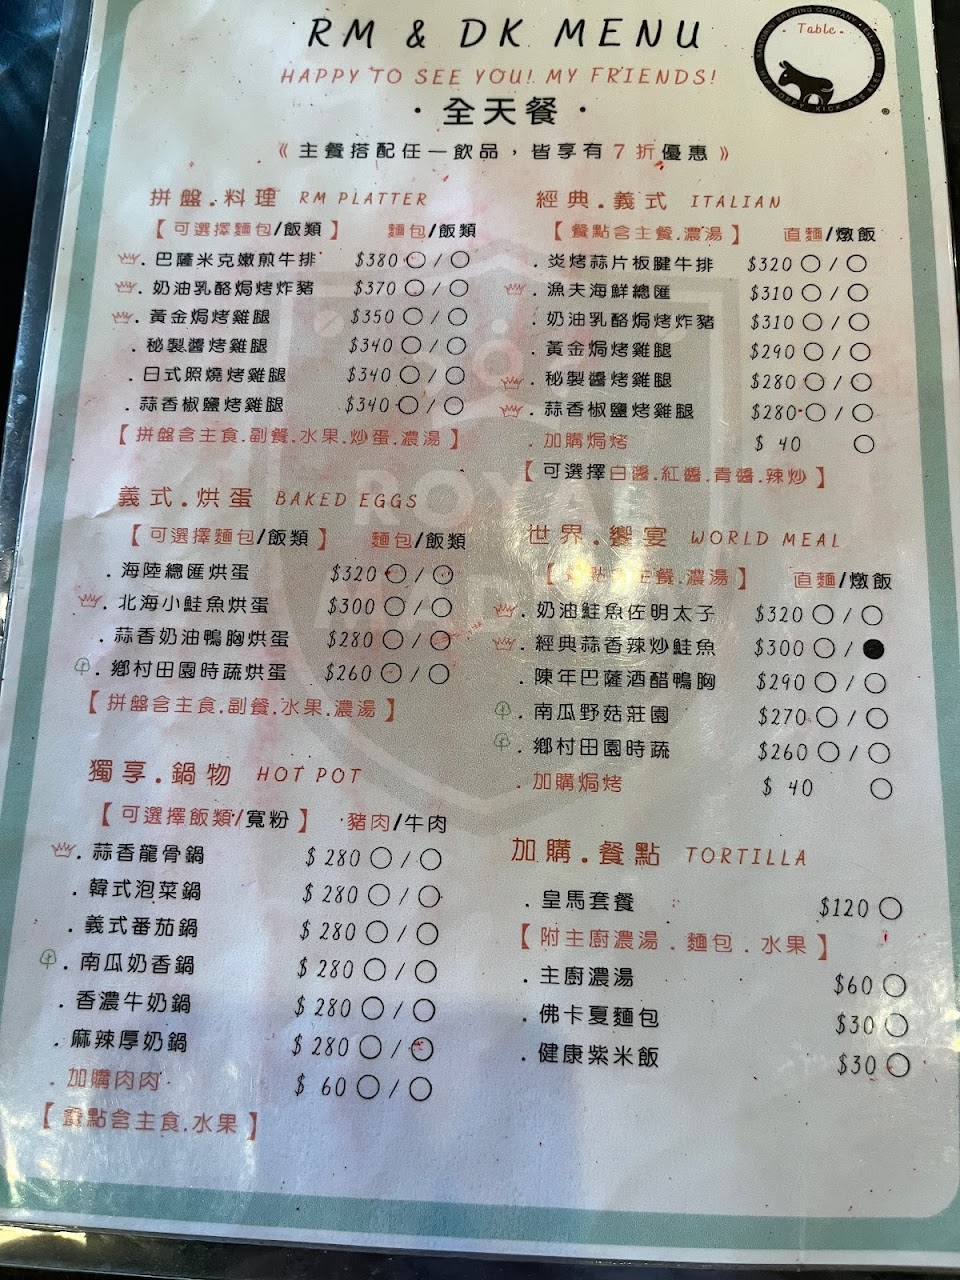 RM & DK MENU
HAPPY TO SEE YOU! MY FRIENDS!
Table
KICK-ASS ALES
·全天餐·
《主餐搭配任一飲品，皆享有7折優惠》
拼盤.料理 RM PLATTER
【可選擇麵包/飯類】 麵包/飯類
.巴薩米克嫩煎牛排 $380 ○/○
.奶油乳酪焗烤炸豬 $370 ○/○
.黃金焗烤雞腿 $350 ○/○
.秘製醬烤雞腿 $340 ○/○
.日式照燒烤雞腿 $340 ○/○
.蒜香椒鹽烤雞腿 $340 ○/○
【拼盤含主食.副餐.水果.炒蛋.濃湯】
義式.烘蛋 BAKED EGGS
【可選擇麵包/飯類】 麵包/飯類
.海陸總匯烘蛋 $320 ○/○
.北海小鮭魚烘蛋 $300 ○/○
.蒜香奶油鴨胸烘蛋 $280 ○/○
.鄉村田園時蔬烘蛋 $260 ○/○
【拼盤含主食.副餐.水果.濃湯】
獨享.鍋物 HOT POT
【可選擇飯類/寬粉】 豬肉/牛肉
.蒜香龍骨鍋 $280 ○/○
.韓式泡菜鍋 $280 ○/○
.義式番茄鍋 $280 ○/○
.南瓜奶香鍋 $280 ○/○
.香濃牛奶鍋 $280 ○/○
.麻辣厚奶鍋 $280 ○/○
.加購肉肉 $ 60 ○/○
【餐點含主食.水果】
經典.義式 ITALIAN
【餐點含主餐.濃湯】 直麵/燉飯
.炎烤蒜片板腱牛排 $320 ○/○
.漁夫海鮮總匯 $310 ○/○
.奶油乳酪焗烤炸豬 $310 ○/○
.黃金焗烤雞腿 $290 ○/○
.秘製醬烤雞腿 $280 ○/○
.蒜香椒鹽烤雞腿 $280 ○/○
.加購焗烤 $ 40 ○
【可選擇白醬.紅醬.青醬.辣炒】
世界.饗宴 WORLD MEAL
主餐.濃湯】 直麵/燉飯
.奶油鮭魚佐明太子 $320 ○/○
.經典蒜香辣炒鮭魚 $300 ○/●
.陳年巴薩酒醋鴨胸 $290 ○/○
.南瓜野菇莊園 $270 ○/○
.鄉村田園時蔬 $260 ○/○
.加購焗烤 $ 40 ○
加購.餐點 TORTILLA
.皇馬套餐 $120 ○
【附主廚濃湯.麵包.水果】
.主廚濃湯 $60 ○
.佛卡夏麵包 $30 ○
.健康紫米飯 $30 ○